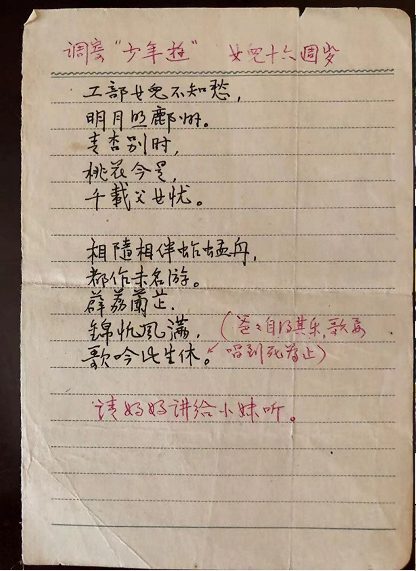 调寄“少年游” 女儿十六周岁
工部女儿不知愁，
明月照鄜州。
青杏别时，
桃花今是，
千载父女忧。
相随相伴蚱蜢舟，
都作未名游。
薜荔兰芷，
锦帆风满，
歌吟此生休。
（爸爸自得其乐，歌要
唱到死为止）
请好好讲给小妹听。